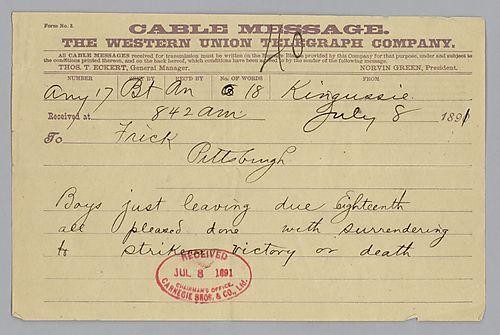 Form No. 2.
CABLE MESSAGE.
THE WESTERN UNION TELEGRAPH COMPANY.
All CABLE MESSAGES received for transmission must be written on the Message Blanks provided by this Company for that purpose, under and subject to
the conditions printed thereon, and on the back hereof, which conditions have been agreed to by the sender of the following message.
THOS. T. ECKERT, General Manager. NORVIN GREEN, President.
NUMBER SENT BY REC'D BY No. OF WORDS FROM
17 Bt An 18 Kingussie
Received at 842 am July 8 1891
To Frick
Pittsburgh
Boys just leaving due Eighteenth
all pleased done with surrendering
to strikers victory or death
RECEIVED
JUL 8 1891
CHAIRMAN'S OFFICE,
CARNEGIE BROS. & CO., Ltd.